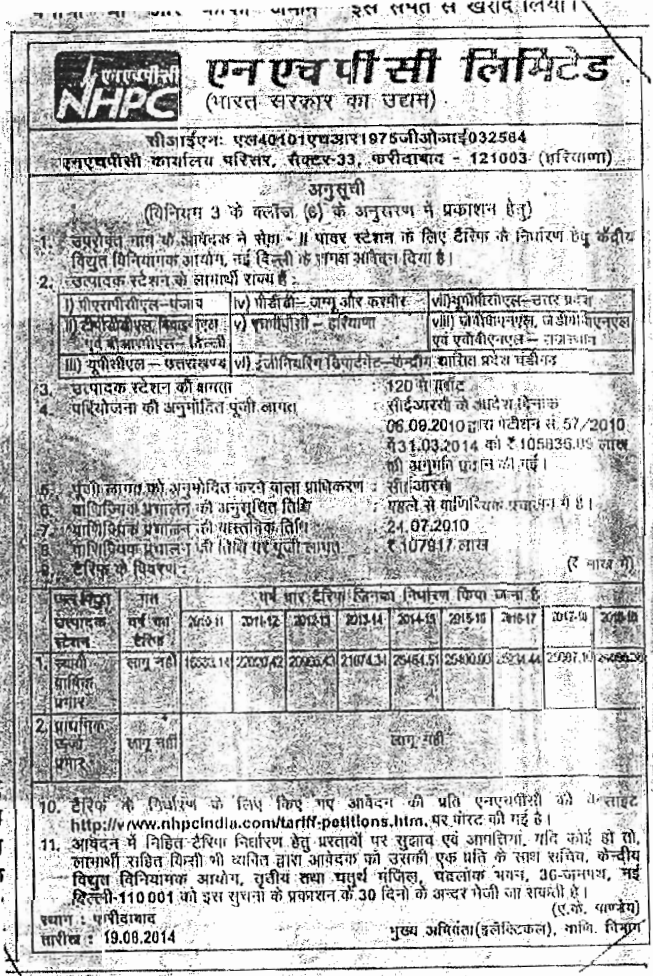 इस संपत से खरीद लिया।
एनएचपीसी
NHPC
एन एच पी सी लिमिटेड
(भारत सरकार का उद्यम)
सीआईएन: एल40101एचआर1975जीओआई032564
एनएचपीसी कार्यालय परिसर, सैक्टर-33, फरीदाबाद - 121003 (हरियाणा)
अनुसूची
(विनियम 3 के क्लॉज (6) के अनुसरण में प्रकाशन हेतु)
1. उपरोक्त नाम के आवेदक ने सेवा - II पावर स्टेशन के लिए टैरिफ के निर्धारण हेतु केंद्रीय
विद्युत विनियामक आयोग, नई दिल्ली के समक्ष आवेदन दिया है।
2. उत्पादक स्टेशन के लाभार्थी राज्य हैं :
i) पीएसपीसीएल-पंजाब iv) पीडीडी-जम्मू और कश्मीर vii) यूपीपीसीएल-उत्तर प्रदेश
ii) v) एचपीपीसी - हरियाणा viii)
एवं एवीवीएनएल - राजस्थान
iii) यूपीसीएल - उत्तराखण्ड vi) इंजीनियरिंग डिपार्टमेंट-केन्द्रीय शासित प्रदेश चंडीगढ़
3. उत्पादक स्टेशन की क्षमता : 120 मेगावाट
4. परियोजना की अनुमोदित पूंजी लागत : सीईआरसी के आदेश दिनांक
06.09.2010 द्वारा पेटीशन सं. 57/2010
31.03.2014 को ₹ लाख
की अनुमति प्रदान की गई।
5. पूंजी लागत को अनुमोदित करने वाला प्राधिकरण : सीईआरसी
6. वाणिज्यिक प्रचालन की अनुसूचित तिथि : पहले से वाणिज्यिक प्रचालन में है।
7. वाणिज्यिक प्रचालन की वास्तविक तिथि : 24.07.2010
8. वाणिज्यिक प्रचालन की तिथि पर पूंजी लागत : ₹ 107917 लाख
9. टैरिफ के विवरण : (₹ लाख में)
गत वर्ष वार टैरिफ जिनका निर्धारण किया जाना है
उत्पादक वर्ष का 2010-11 2011-12 2012-13 2013-14 2014-15 2015-16 2016-17 2017-18 2018-19
स्टेशन टैरिफ
1. स्थायी लागू नहीं 21074.34
वार्षिक
प्रभार
2. प्राथमिक
ऊर्जा लागू नहीं लागू नहीं
प्रभार
10. टैरिफ के निर्धारण के लिए किए गए आवेदन की प्रति एनएचपीसी की वेबसाइट
http://www.nhpcindia.com/tariff-petitions.htm. पर पोस्ट की गई है।
11. आवेदन में निहित टैरिफ निर्धारण हेतु प्रस्तावों पर सुझाव एवं आपत्तियां, यदि कोई हो तो,
लाभार्थी सहित किसी भी व्यक्ति द्वारा आवेदक को उसकी एक प्रति के साथ सचिव, केन्द्रीय
विद्युत विनियामक आयोग, तृतीय तथा चतुर्थ मंजिल, चंद्रलोक भवन, 36-जनपथ, नई
दिल्ली-110 001 को इस सूचना के प्रकाशन के 30 दिनो के अन्दर भेजी जा सकती है।
(ए.के. पाण्डेय)
स्थान : फरीदाबाद
मुख्य अभियंता(इलैक्टिकल), वाणि. विभाग
तारीख : 19.08.2014